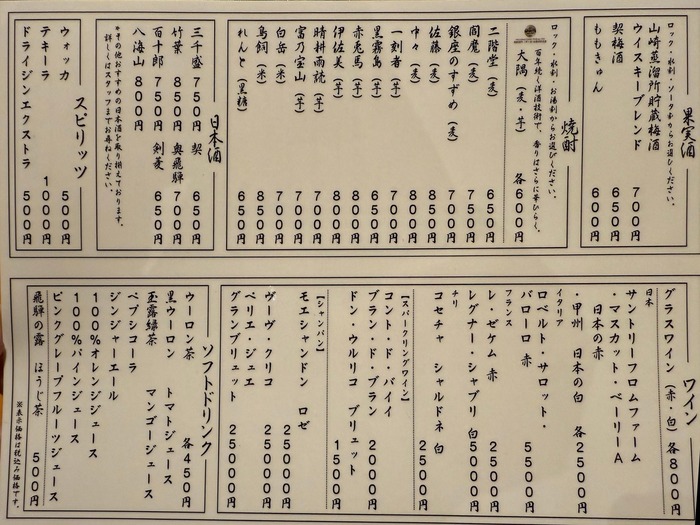 果実酒
ロック・水割・ソーダ割からお選びください。
山崎蒸溜所貯蔵梅酒
ウイスキーブレンド 700円
契梅酒 650円
ももきゅん 600円
焼酎
ロック・水割・お湯割からお選びください。
百年続く洋酒技術で、香りはさらに華ひらく。
大隅(麦・芋) 各600円
二階堂(麦) 650円
閻魔(麦) 750円
銀座のすずめ(麦) 700円
佐藤(麦) 850円
中々(麦) 800円
一刻者(芋) 700円
黒霧島(芋) 650円
赤兎馬(芋) 800円
伊佐美(芋) 800円
晴耕雨読(芋) 700円
富乃宝山(芋) 700円
白岳(米) 700円
鳥飼(米) 850円
れんと(黒糖) 650円
日本酒
三千盛 750円 契 650円
竹葉 850円 奥飛騨 700円
百十郎 750円 剣菱 650円
八海山 800円
*その他おすすめの日本酒を取り揃えております。
詳しくはスタッフまでお尋ねください。
スピリッツ
ウォッカ 500円
テキーラ 1000円
ドライジンエクストラ 500円
ワイン
グラスワイン(赤・白) 各800円
日本
サントリーフロムファーム
・マスカット・ベーリーA
日本の赤
・甲州 日本の白 各2500円
イタリア
ロベルト・サロット・
バローロ 赤 5500円
フランス
レ・ゼケム 赤 2500円
レグナー・シャブリ 白 5000円
チリ
コセチャ シャルドネ 白 2500円
【スパークリングワイン】
コント・ド・バイイ
ブラン・ド・ブラン 2000円
ドン・ウルリコ ブリュット 1500円
【シャンパン】
モエシャンドン ロゼ 25000円
ヴーヴ・クリコ 25000円
ペリエ・ジュエ
グランブリュット 25000円
ソフトドリンク
ウーロン茶 各450円
黒ウーロン トマトジュース
玉露緑茶 マンゴージュース
ペプシコーラ
ジンジャーエール
100%オレンジジュース
100%パインジュース
ピンクグレープフルーツジュース
飛騨の露 ほうじ茶 500円
※表示価格は税込み価格です。